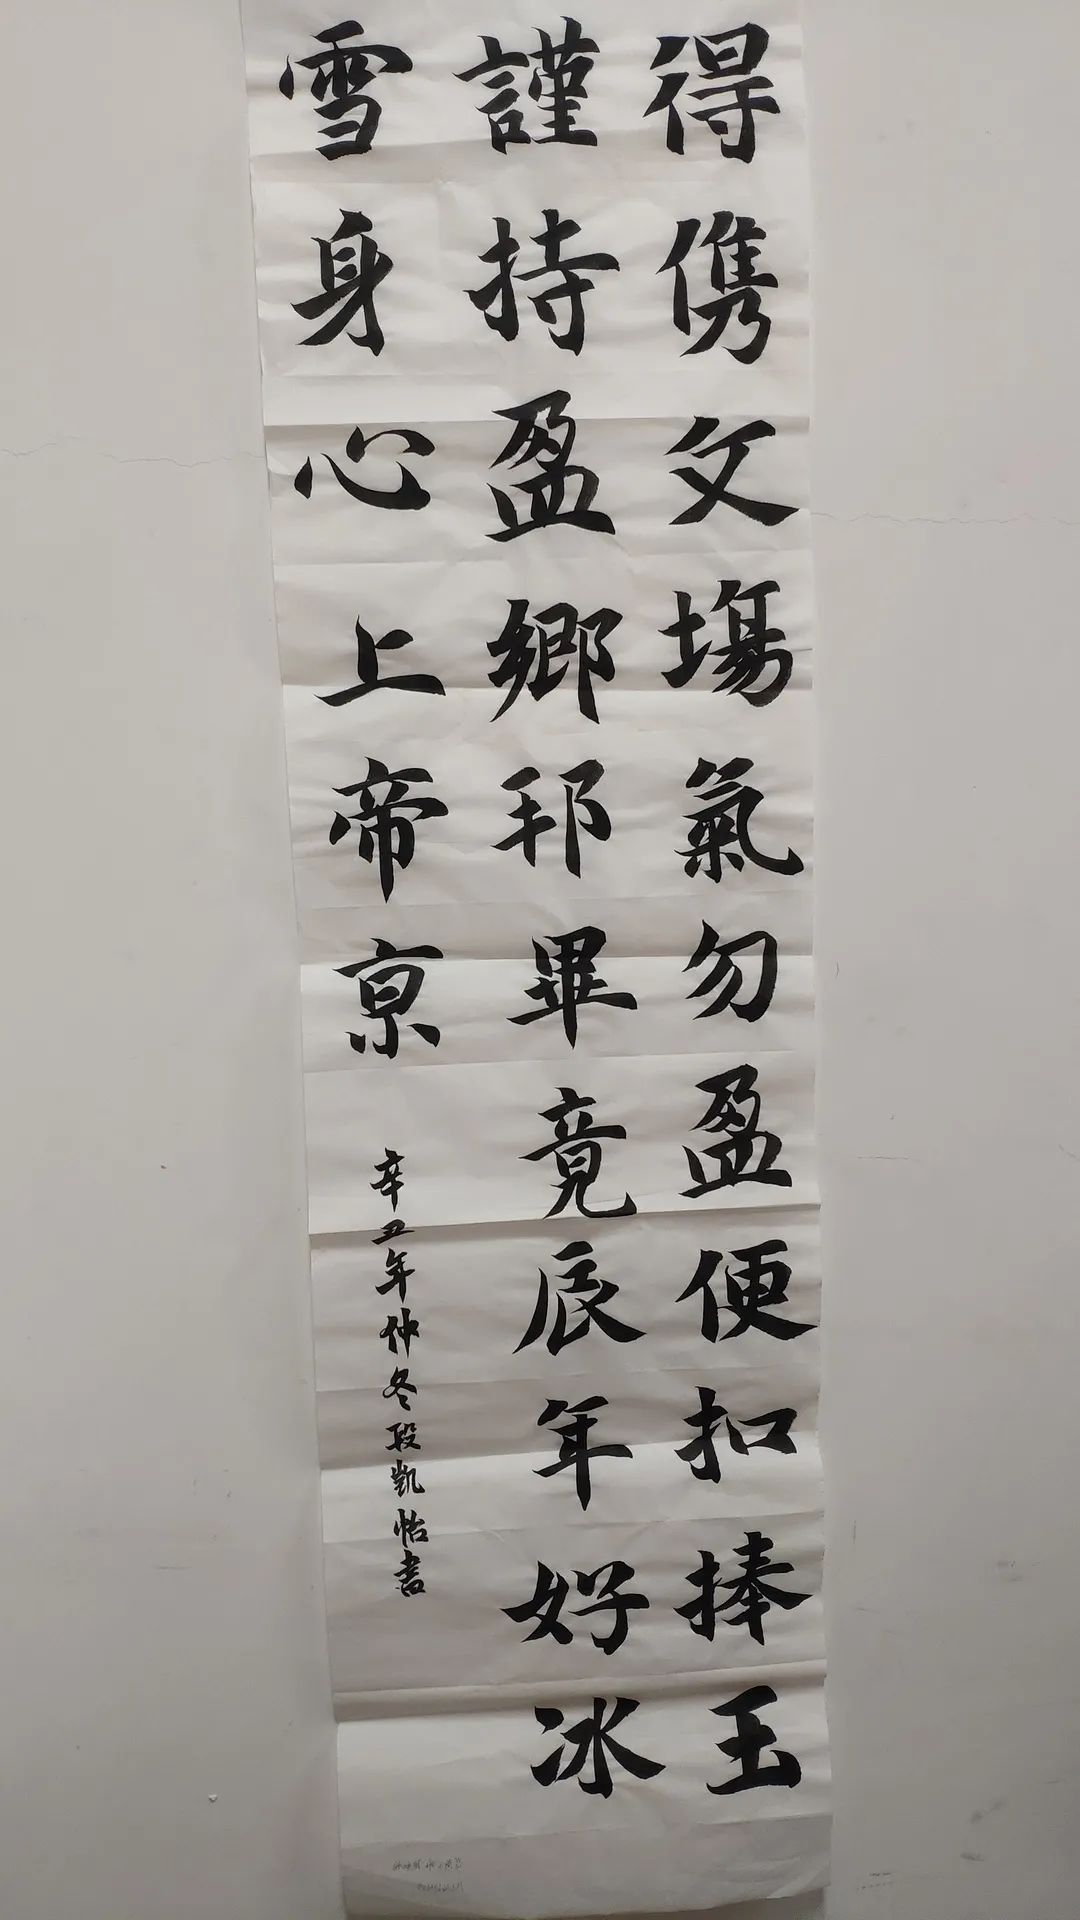 得儁文場氣勿盈便扣捧玉
謹持盈鄉邦畢竟辰年好冰
雪身心上帝京
辛丑年仲冬段凱怡書